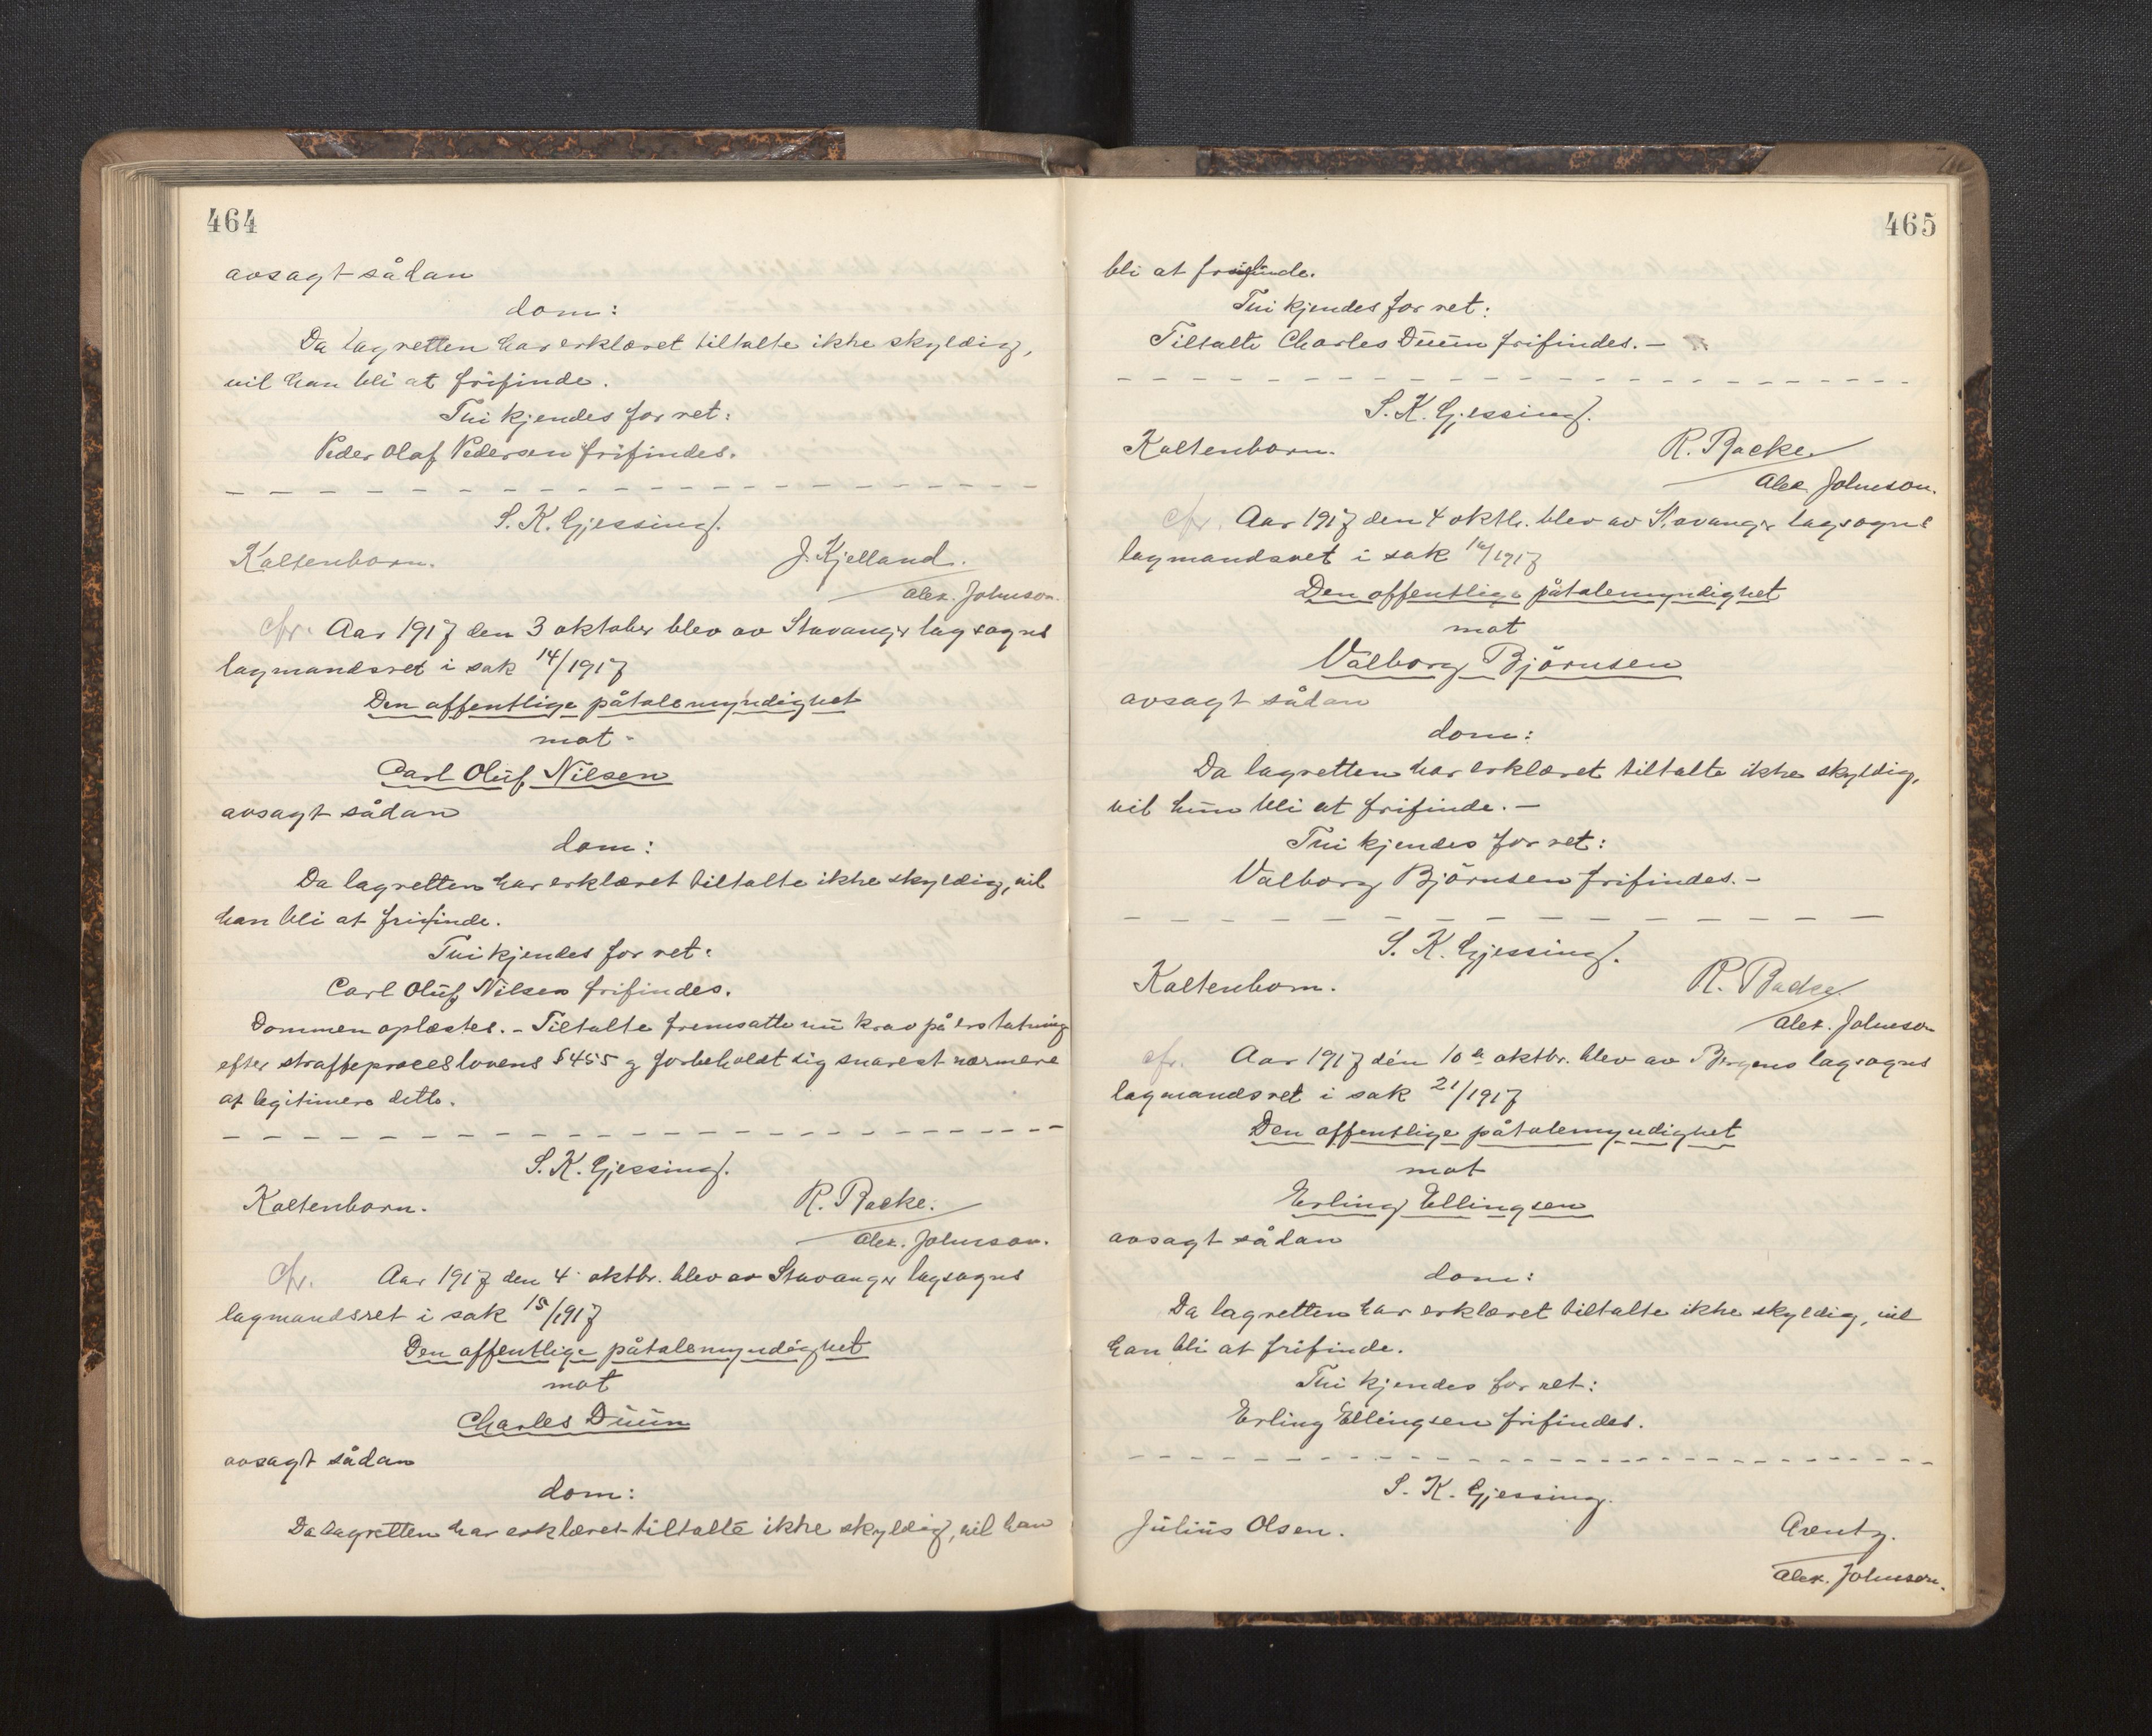 464
avsagt sådan
dom:
Da lagretten har erklæret tiltalte ikke skyldig,
vil han bli at frifinde.
Thi kjendes for ret:
Peder Olaf Pedersen frifindes.
S. K. Gjessing.
Kaltenborn. J. Kjelland.
Alex. Johnson.
Cfr. Aar 1917 den 3 oktober blev av Stavanger lagsogns
lagmandsret i sak 14/1917
Den offentlige påtalemyndighet
mot
Carl Oluf Nilsen
avsagt sådan
dom:
Da lagretten har erklæret tiltalte ikke skyldig, vil
han bli at frifinde.
Thi kjendes for ret:
Carl Oluf Nilsen frifindes.
Dommen oplæstes. - Tiltalte fremsatte nu krav på erstatning
efter straffeproceslovens § 455 og forbeholdt sig snarest nærmere
at legitimere dette.
S. K. Gjessing.
Kaltenborn. R. Racke.
Alex. Johnson.
Cfr. Aar 1917 den 4 oktbr. blev av Stavanger lagsogns
lagmandsret i sak 15/1917
Den offentlige påtalemyndighet
mot
Charles Duun
avsagt sådan
dom:
Da lagretten har erklæret tiltalte ikke skyldig, vil han
465
bli at frifinde.
Thi kjendes for ret:
Tiltalte Charles Duun frifindes. -
S. K. Gjessing.
Kaltenborn. R. Racke.
Alex. Johnson.
Cfr. Aar 1917 den 4 oktb. blev av Stavanger lagsogns
lagmandsret i sak 16/1917
Den offentlige påtalemyndighet
mot
Valborg Björnsen
avsagt sådan
dom:
Da lagretten har erklæret tiltalte ikke skyldig,
vil hun bli at frifinde. -
Thi kjendes for ret:
Valborg Björnsen frifindes. -
S. K. Gjessing.
Kaltenborn. R. Racke.
Alex. Johnson
cfr. Aar 1917 den 10 oktbr. blev av Bergens lagsogns
lagmandsret i sak 21/1917
Den offentlige påtalemyndighet
mot
Erling Ellingsen
avsagt sådan
dom:
Da lagretten har erklæret tiltalte ikke skyldig, vil
han bli at frifinde.
Thi kjendes for ret:
Erling Ellingsen frifindes.
S. K. Gjessing.
Julius Olsen. Arentz.
Alex. Johnson.